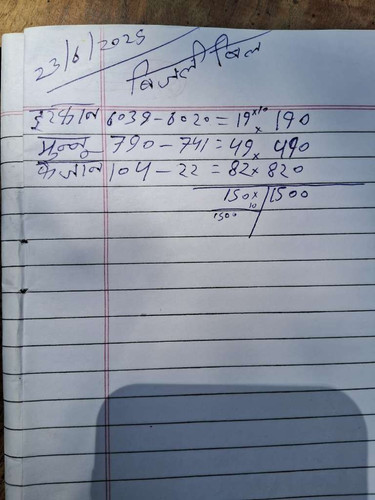 23/6/2025
बिजली बिल
इरफान 6039-6020=19×10 190
मुन्नू 790-741=49× 490
कैजान 104-22=82× 820
150×10 1500
1500